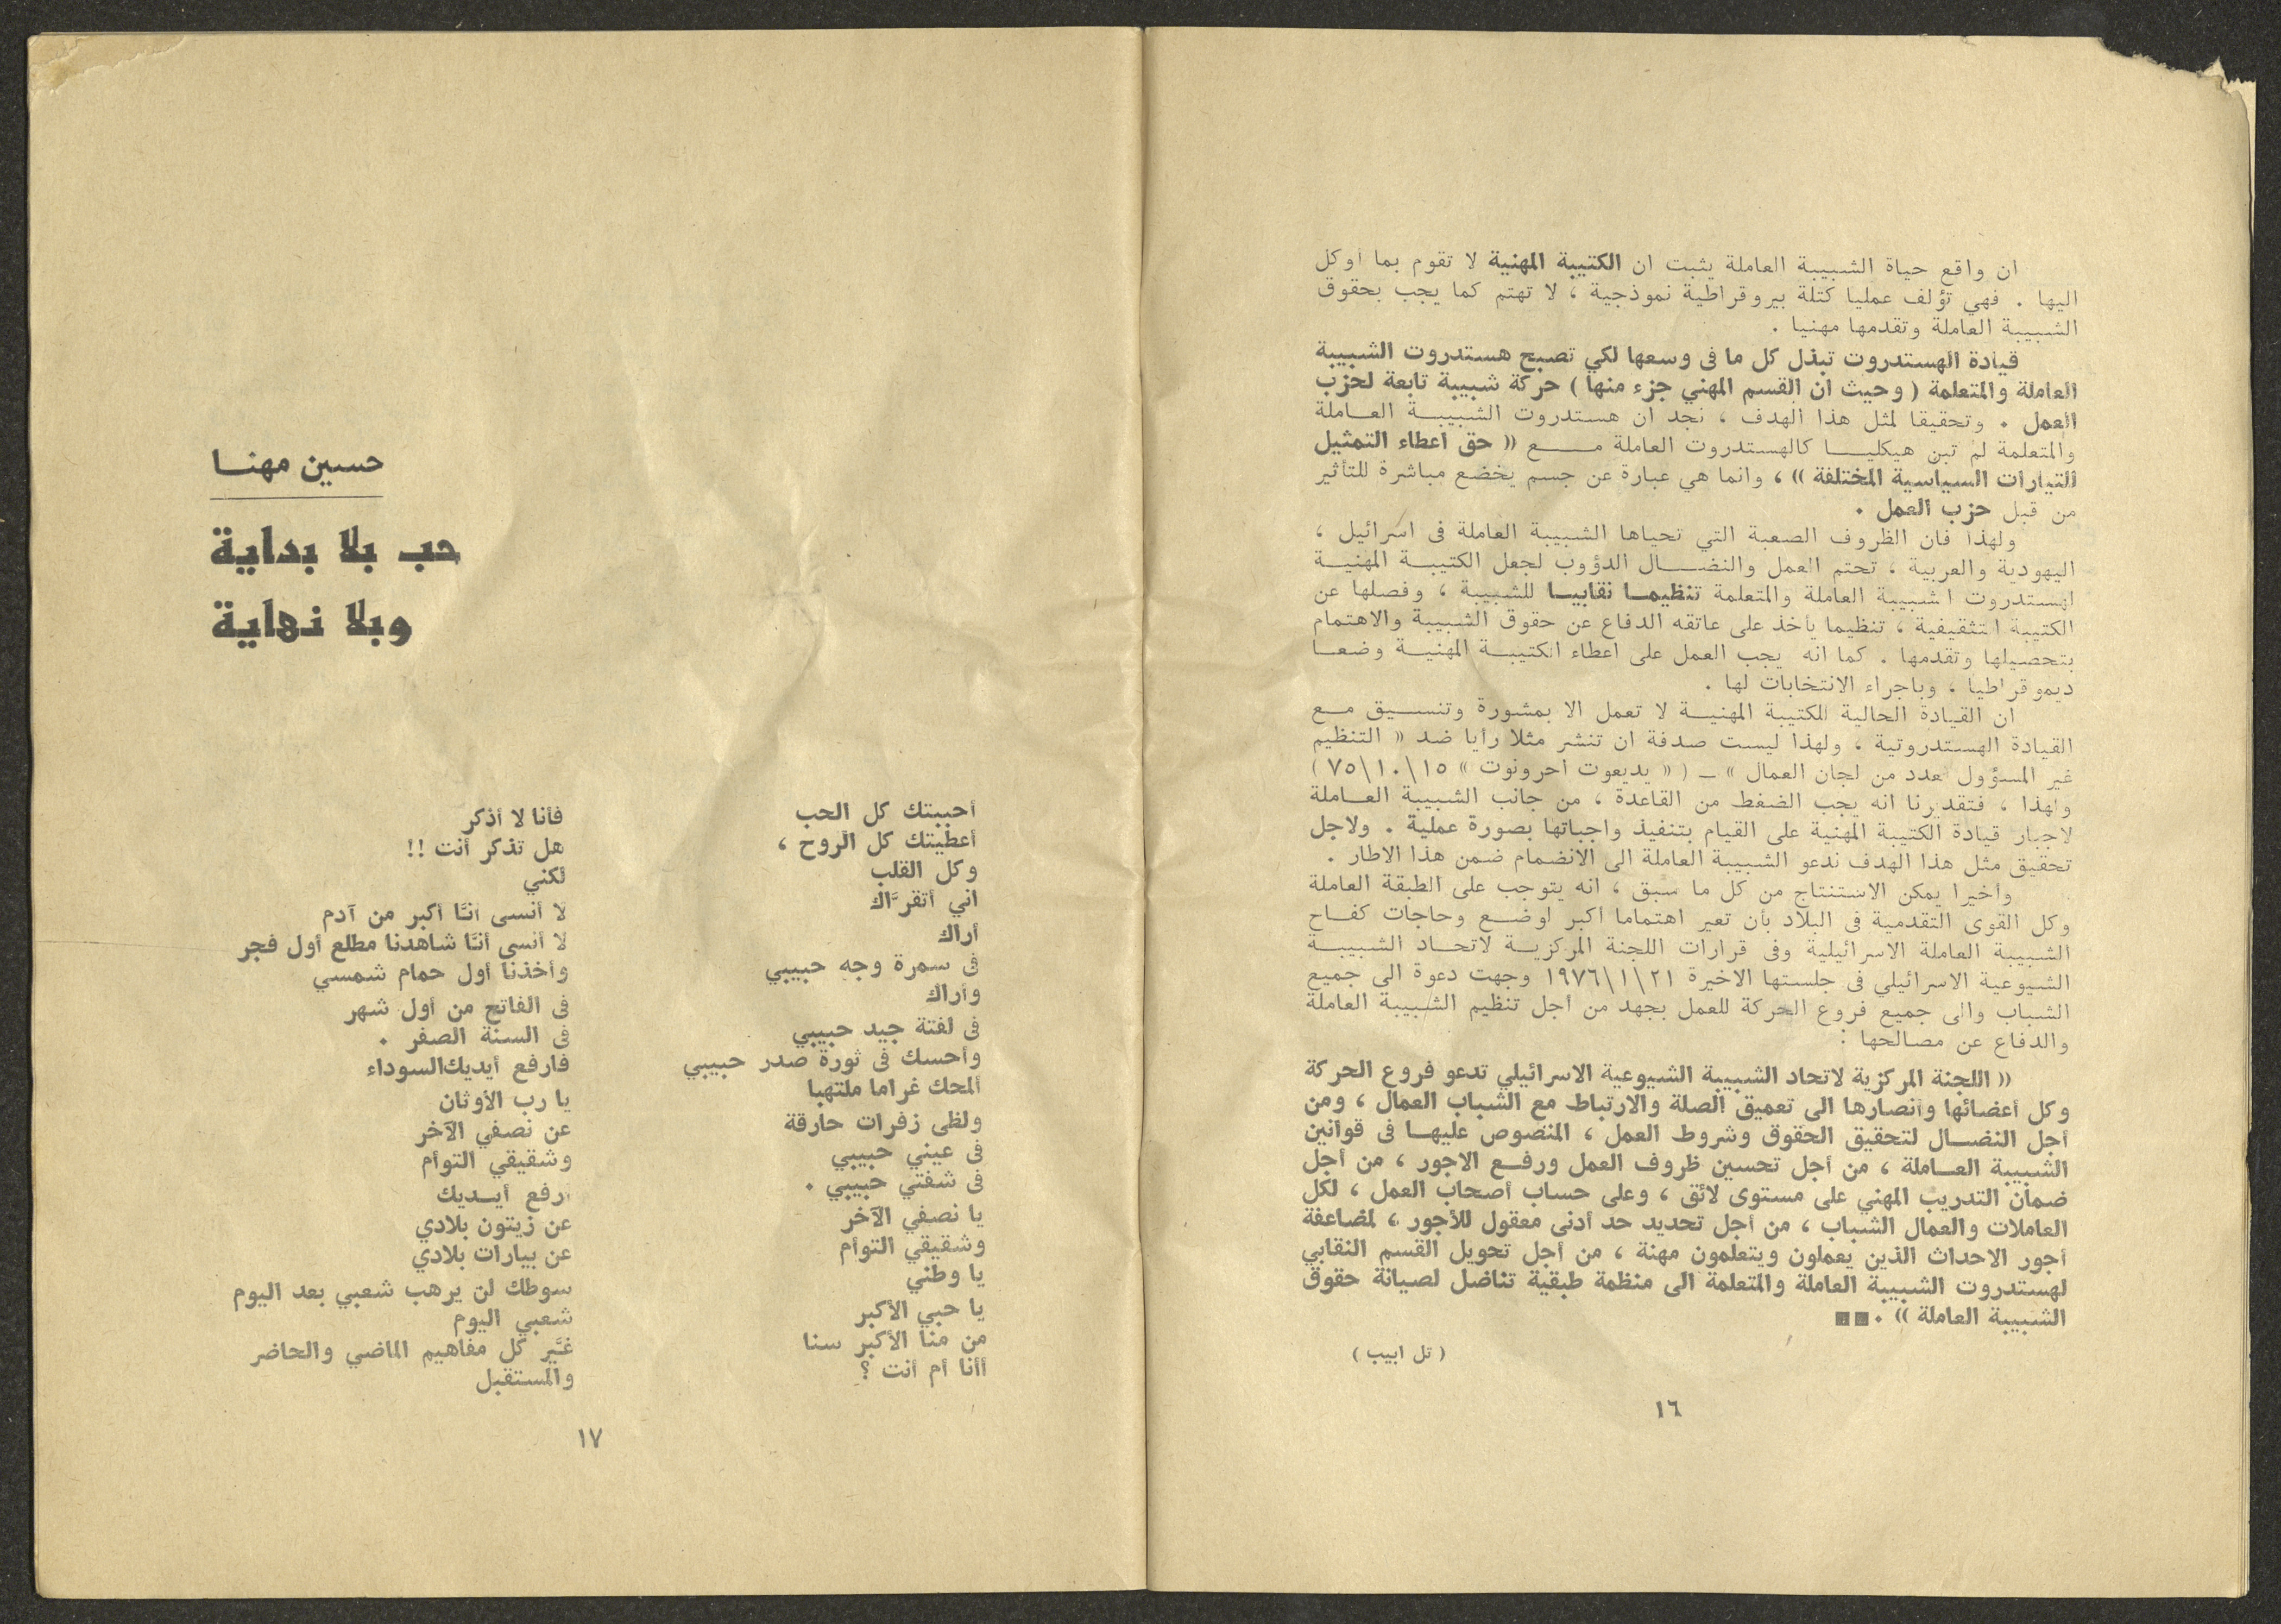 ان واقع حياة الشبيبة العاملة يثبت ان الكتيبة المهنية لا تقوم بما اوكل
اليها . فهي تؤلف عمليا كتلة بيروقراطية نموذجية ، لا تهتم كما يجب بحقوق
الشبيبة العاملة وتقدمها مهنيا .
قيادة الهستدروت تبذل كل ما فى وسعها لكي تصبح هستدروت الشبيبة
العاملة والمتعلمة ( وحيث ان القسم المهني جزء منها ) حركة شبيبة تابعة لحزب
العمل . وتحقيقا لمثل هذا الهدف ، نجد ان هستدروت الشبيبة العاملة
والمتعلمة لم تبن هيكليا كالهستدروت العاملة مع « حق اعطاء التمثيل
للتيارات السياسية المختلفة » ، وانما هي عبارة عن جسم يخضع مباشرة للتأثير
من قبل حزب العمل .
ولهذا فان الظروف الصعبة التي تحياها الشبيبة العاملة فى اسرائيل ،
اليهودية والعربية ، تحتم العمل والنضال الدؤوب لجعل الكتيبة المهنية
لهستدروت الشبيبة العاملة والمتعلمة تنظيما نقابيا للشبيبة ، وفصلها عن
الكتيبة التثقيفية ، تنظيما يأخذ على عاتقه الدفاع عن حقوق الشبيبة والاهتمام
بتحصيلها وتقدمها . كما انه يجب العمل على اعطاء الكتيبة المهنية وضعا
ديموقراطيا ، وباجراء الانتخابات لها .
ان القيادة الحالية للكتيبة المهنية لا تعمل الا بمشورة وتنسيق مع
القيادة الهستدروتية ، ولهذا ليست صدفة ان تنشر مثلا رأيا ضد « التنظيم
غير المسؤول لعدد من لجان العمال » ـ ( « يديعوت احرونوت » ١٥\١٠\٧٥ )
ولهذا ، فتقديرنا انه يجب الضغط من القاعدة ، من جانب الشبيبة العاملة
لاجبار قيادة الكتيبة المهنية على القيام بتنفيذ واجباتها بصورة عملية . ولاجل
تحقيق مثل هذا الهدف ندعو الشبيبة العاملة الى الانضمام ضمن هذا الاطار .
واخيرا يمكن الاستنتاج من كل ما سبق ، انه يتوجب على الطبقة العاملة
وكل القوى التقدمية فى البلاد بأن تعير اهتماما اكبر اوضع وحاجات كفاح
الشبيبة العاملة الاسرائيلية وفى قرارات اللجنة المركزية لاتحاد الشبيبة
الشيوعية الاسرائيلي فى جلستها الاخيرة ٢١\١\١٩٧٦ وجهت دعوة الى جميع
الشباب والى جميع فروع الحركة للعمل بجهد من اجل تنظيم الشبيبة العاملة
والدفاع عن مصالحها :
« اللجنة المركزية لاتحاد الشبيبة الشيوعية الاسرائيلي تدعو فروع الحركة
وكل أعضائها وأنصارها الى تعميق الصلة والارتباط مع الشباب العمال ، ومن
أجل النضال لتحقيق الحقوق وشروط العمل ، المنصوص عليها فى قوانين
الشبيبة العاملة ، من أجل تحسين ظروف العمل ورفع الاجور ، من أجل
ضمان التدريب المهني على مستوى لائق ، وعلى حساب أصحاب العمل ، لكل
العاملات والعمال الشباب ، من أجل تحديد حد أدنى معقول للأجور ، لمضاعفة
أجور الاحداث الذين يعملون ويتعلمون مهنة ، من أجل تحويل القسم النقابي
لهستدروت الشبيبة العاملة والمتعلمة الى منظمة طبقية تناضل لصيانة حقوق
الشبيبة العاملة » .
( تل ابيب )
١٦
حسين مهنا
حب بلا بداية
وبلا نهاية
أحببتك كل الحب
أعطيتك كل الروح ،
وكل القلب
اني أتقرَّاك
أراك
فى سمرة وجه حبيبي
وأراك
فى لفتة جيد حبيبي
وأحسك فى ثورة صدر حبيبي
ألمحك غراما ملتهبا
ولظى زفرات حارقة
فى عيني حبيبي
فى شفتي حبيبي .
يا نصفي الآخر
وشقيقي التوأم
يا وطني
يا حبي الأكبر
من منا الأكبر سنا
أأنا أم أنت ؟
فأنا لا أذكر
هل تذكر أنت !!
لكني
لا أنسى أنَّا أكبر من آدم
لا أنسى أنَّا شاهدنا مطلع أول فجر
وأخذنا أول حمام شمسي
فى الفاتح من أول شهر
فى السنة الصفر .
فارفع أيديك السوداء
يا رب الأوثان
عن نصفي الآخر
وشقيقي التوأم
ارفع أيديك
عن زيتون بلادي
عن بيارات بلادي
سوطك لن يرهب شعبي بعد اليوم
شعبي اليوم
غيَّر كل مفاهيم الماضي والحاضر
والمستقبل
١٧